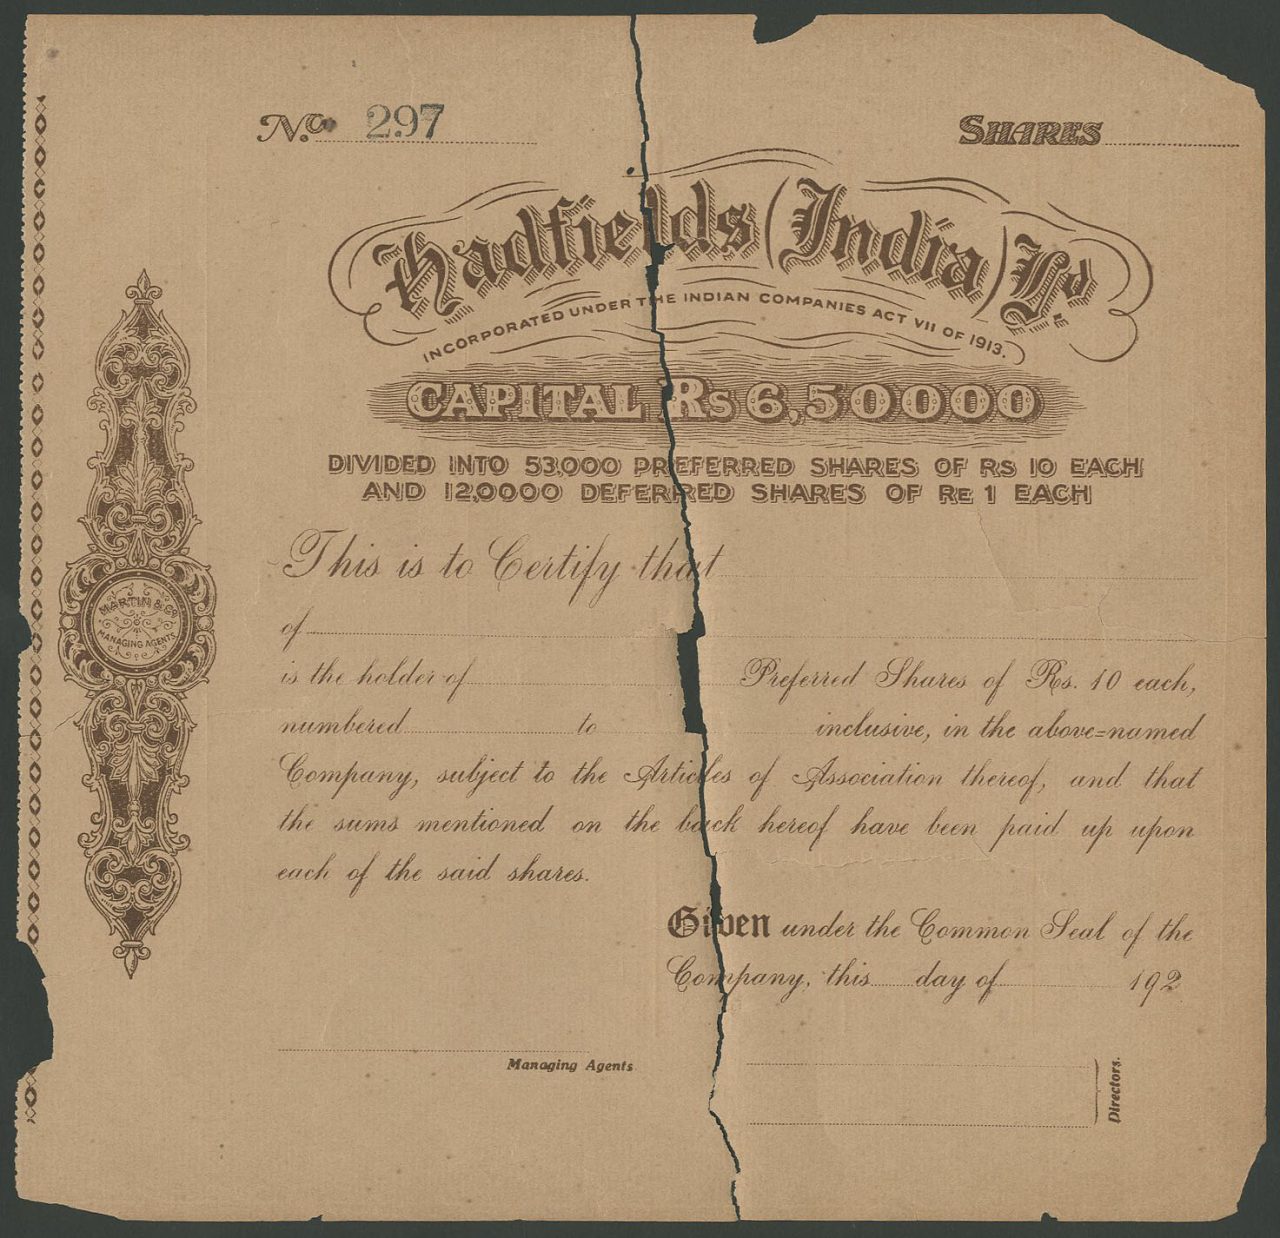 No. 297
SHARES
Hadfields (India) Ld.
INCORPORATED UNDER THE INDIAN COMPANIES ACT VII OF 1913.
CAPITAL Rs 6,50000
DIVIDED INTO 53,000 PREFERRED SHARES OF Rs 10 EACH
AND 12,0000 DEFERRED SHARES OF Re 1 EACH
This is to Certify that
of
is the holder of Preferred Shares of Rs. 10 each,
numbered to inclusive, in the above=named
Company, subject to the Articles of Association thereof, and that
the sums mentioned on the back hereof have been paid up upon
each of the said shares.
Given under the Common Seal of the
Company, this day of 192
Managing Agents
Directors.
MARTIN & Co
MANAGING AGENTS